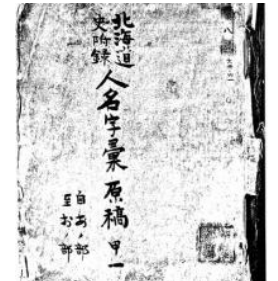 北海道
史附録
人名字彙原稿 甲一
自あノ部
至おノ部